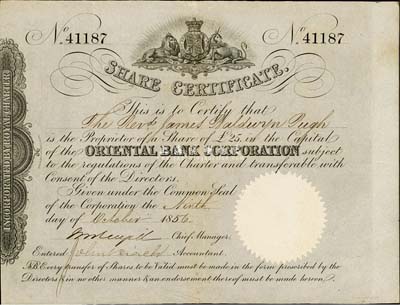 No. 41187 No. 41187
SHARE CERTIFICATE.
This is to Certify that
The Revd. James Baldwyn Pugh
is the Proprietor of a Share of £25, in the Capital
of the ORIENTAL BANK CORPORATION subject
to the regulations of the Charter and transferable with
Consent of the Directors.
Given under the Common Seal
of the Corporation the Ninth
day of October 1856
Chief Manager.
Entered Accountant.
NB. Every transfer of Shares to be Valid must be made in the form prescribed by the
Directors & in no other manner & an endorsement thereof must be made hereon.
INCORPORATED BY ROYAL CHARTER